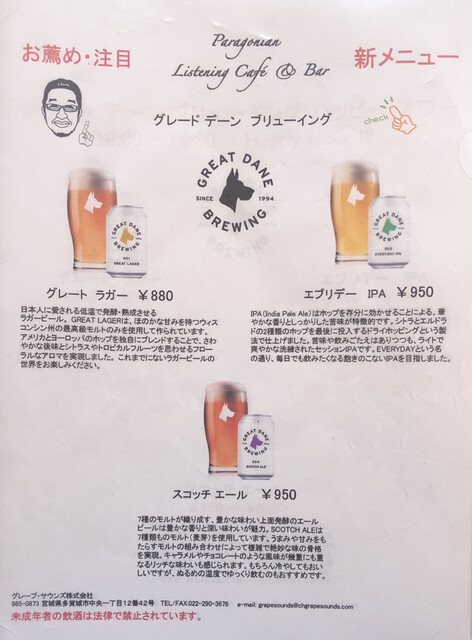 お薦め・注目
Paragonian
Listening Café & Bar
新メニュー
check
グレード デーン ブリューイング
GREAT DANE
SINCE 1994
BREWING
GREAT DANE
BREWING
001
GREAT LAGER
GREAT DANE
BREWING
EVERYDAY IPA
グレート ラガー ¥880
日本人に愛される低温で発酵・熟成させる
ラガービール。GREAT LAGERは、ほのかな甘みを持つウィス
コンシン州の最高級モルトのみを使用して作られています。
アメリカとヨーロッパのホップを独自にブレンドすることで、さわ
やかな後味とシトラスやトロピカルフルーツを思わせるフロー
ラルなアロマを実現しました。これまでにないラガービールの
世界をお楽しみください。
エブリデー IPA ¥950
IPA(India Pale Ale)はホップを存分に効かせることによる、華
やかな香りとしっかりした苦味が特徴的です。シトラとエルドラ
ドの2種類のホップを最後に投入するドライホッピングという製
法で仕上げました。苦味や飲みごたえはありつつも、ライトで
で爽やかな洗練されたセッションIPAです。EVERYDAYという名
の通り、毎日でも飲みたくなる飽きのこないIPAを目指しました。
GREAT DANE
BREWING
004
SCOTCH ALE
スコッチ エール ¥950
7種のモルトが織り成す、豊かな味わい上面発酵のエール
ビールは豊かな香りと深い味わいが魅力。SCOTCH ALEは
7種類ものモルト(麦芽)を使用しています。うまみや甘みをも
たらすモルトの組み合わせによって複雑で絶妙な味の骨格
を実現。キャラメルやチョコレートのような風味が幾重にも重
なるリッチな味わいも感じられます。もちろん冷やしてもおい
しいですが、ぬるめの温度でゆっくり飲むのもおすすめです。
グレープ・サウンズ株式会社
985-0873 宮城県多賀城市中央一丁目12番42号 TEL/FAX:022-290-3676 e-mail: grapesounds@chgrapesounds.com
未成年者の飲酒は法律で禁止されています。